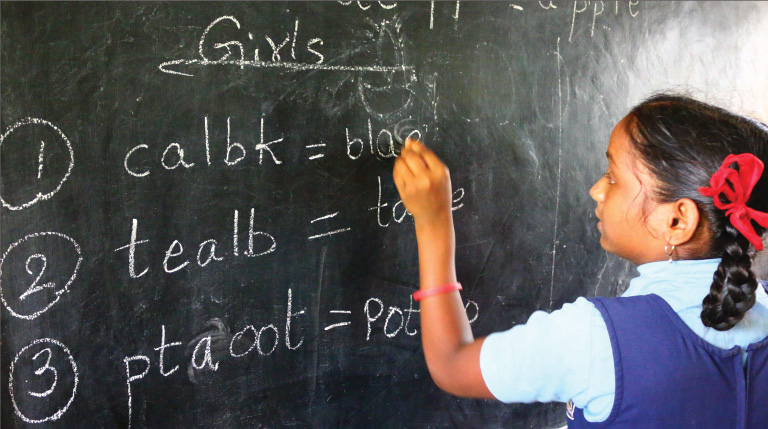 = apple
Girls
1 calbk = blac
2 tealb =
3 ptaoot =